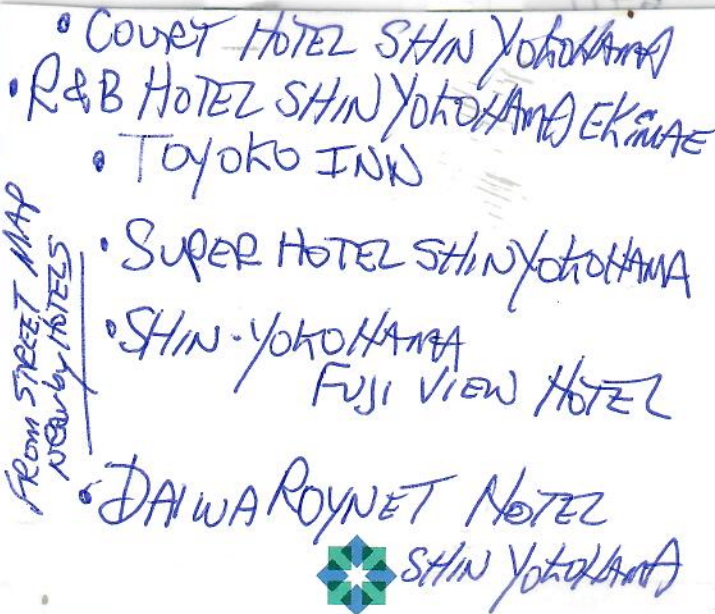 • COURT HOTEL SHIN YOKOHAMA
• R&B HOTEL SHIN YOKOHAMA EKIMAE
• TOYOKO INN
• SUPER HOTEL SHINYOKOHAMA
• SHIN-YOKOHAMA
FUJI VIEW HOTEL
• DAIWA ROYNET HOTEL
SHIN YOKOHAMA
FROM STREET MAP
NEARby HOTELS